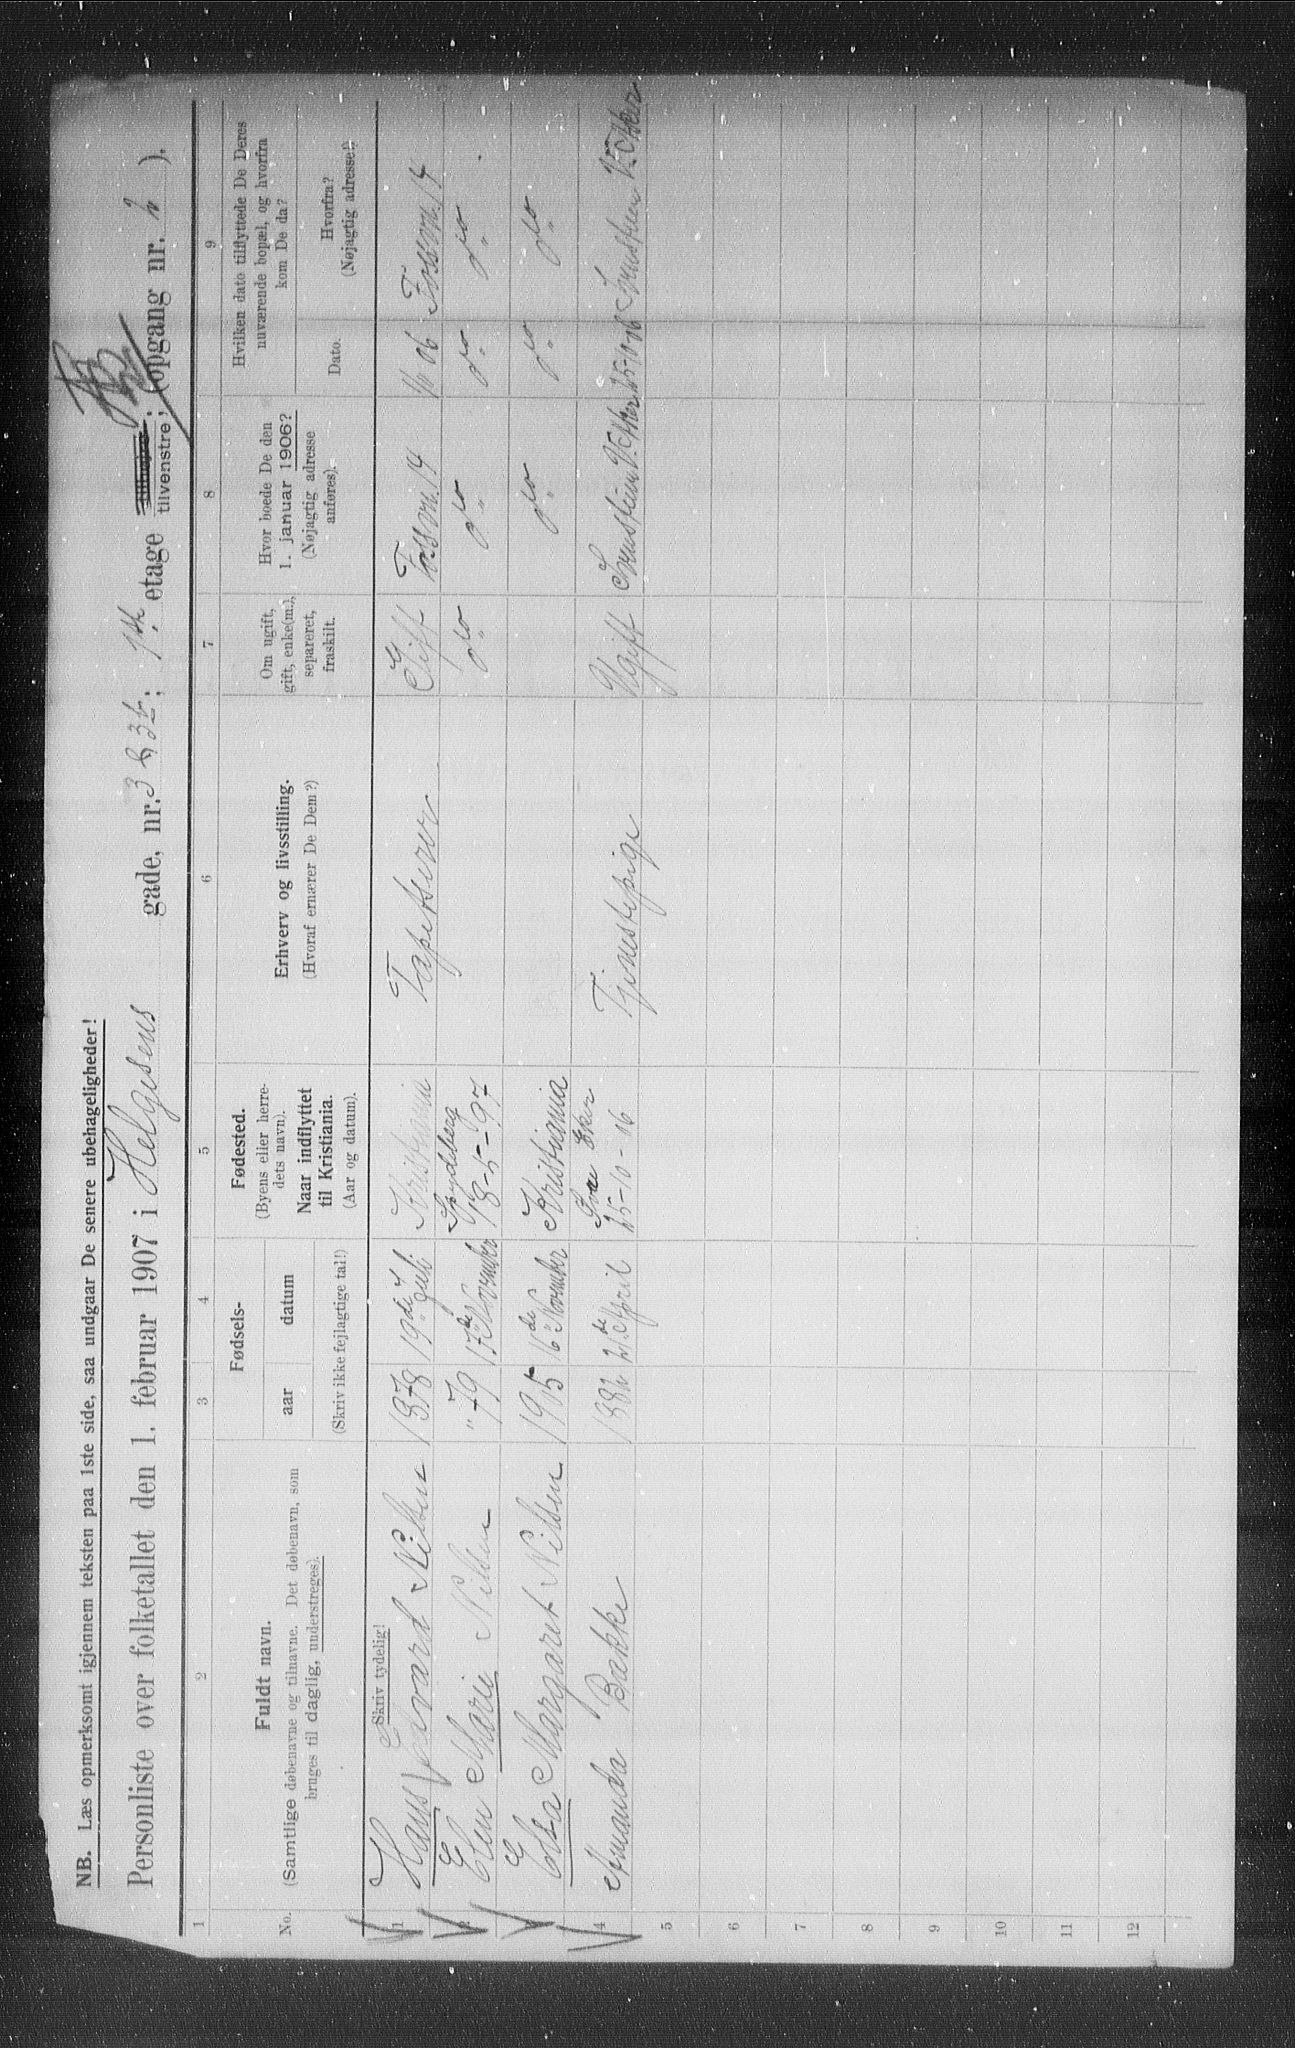 NB. Læs opmerksomt igjennem teksten paa 1ste side, saa undgaar De senere ubehageligheder!
Personliste over folketallet den 1. februar 1907 i Helgesens gade, nr. 3 ; 1ste etage tilhøjre; tilvenstre; (opgang nr. ).
1 2 3 4 5 6 7 8 9
No.
Fuldt navn.
(Samtlige døbenavne og tilnavne. Det døbenavn, som
bruges til daglig, understreges).
Fødsels-
aar datum
(Skriv ikke fejlagtige tal!)
Fødested.
(Byens eller herre-
dets navn).
Naar indflyttet
til Kristiania.
(Aar og datum).
Erhverv og livsstilling.
(Hvoraf ernærer De Dem?)
Om ugift,
gift, enke(m.),
separeret,
fraskilt.
Hvor boede De den
1. januar 1906?
(Nøjagtig adresse
anføres).
Hvilken dato tilflyttede De Deres
nuværende bopæl, og hvorfra
kom De da?
Dato.
Hvorfra?
(Nøjagtig adresse!)
Skriv tydelig!
1 Hans Edvard Nilsen 1878 19de Juli Kristiania Tapetserer Gift Fossv. 14 06 Fossv. 14
2 Elen Marie Nilsen " 79 17de November Spydeberg 18-5-97 do do do do
3 Elsa Margaret Nilsen 1905 16de November Kristiania do do do
4 Amanda Bække 1882 21de April Eker 25-10-06 Tjenestepige Ugift V. Eker 25-10-06 V. Eker
5
6
7
8
9
10
11
12